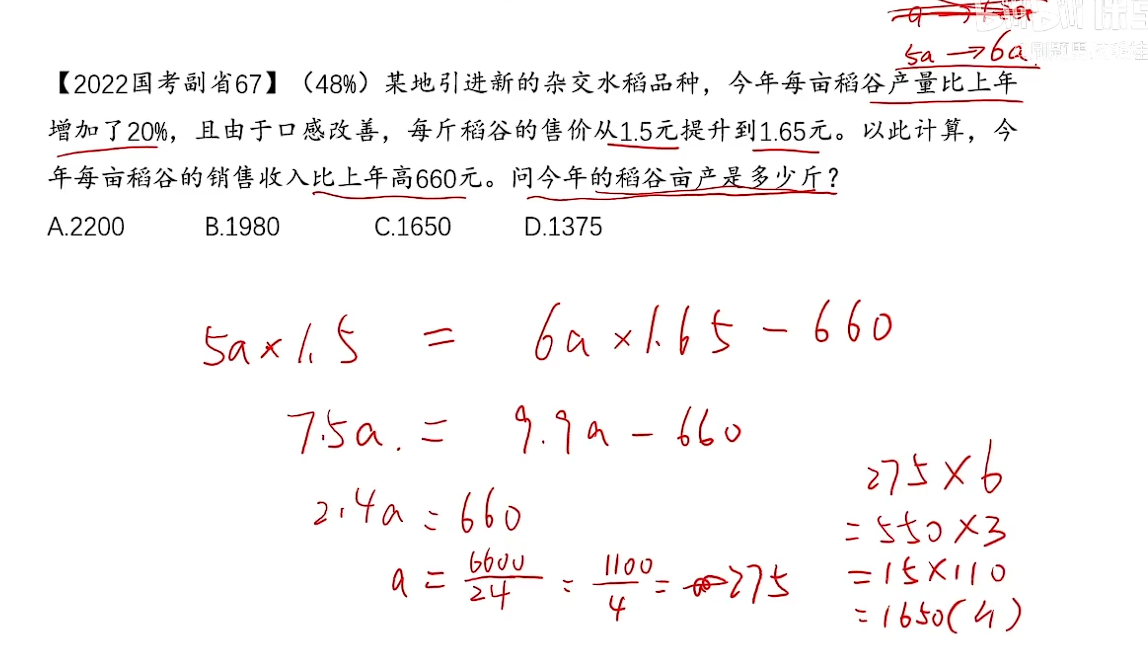 5a → 6a
【2022国考副省67】（48%）某地引进新的杂交水稻品种，今年每亩稻谷产量比上年
增加了20%，且由于口感改善，每斤稻谷的售价从1.5元提升到1.65元。以此计算，今
年每亩稻谷的销售收入比上年高660元。问今年的稻谷亩产是多少斤？
A.2200 B.1980 C.1650 D.1375
5a×1.5 = 6a×1.65-660
7.5a. = 9.9a-660
2.4a=660
a = 6600/24 = 1100/4 = 275
275×6
=550×3
=15×110
=1650(斤)